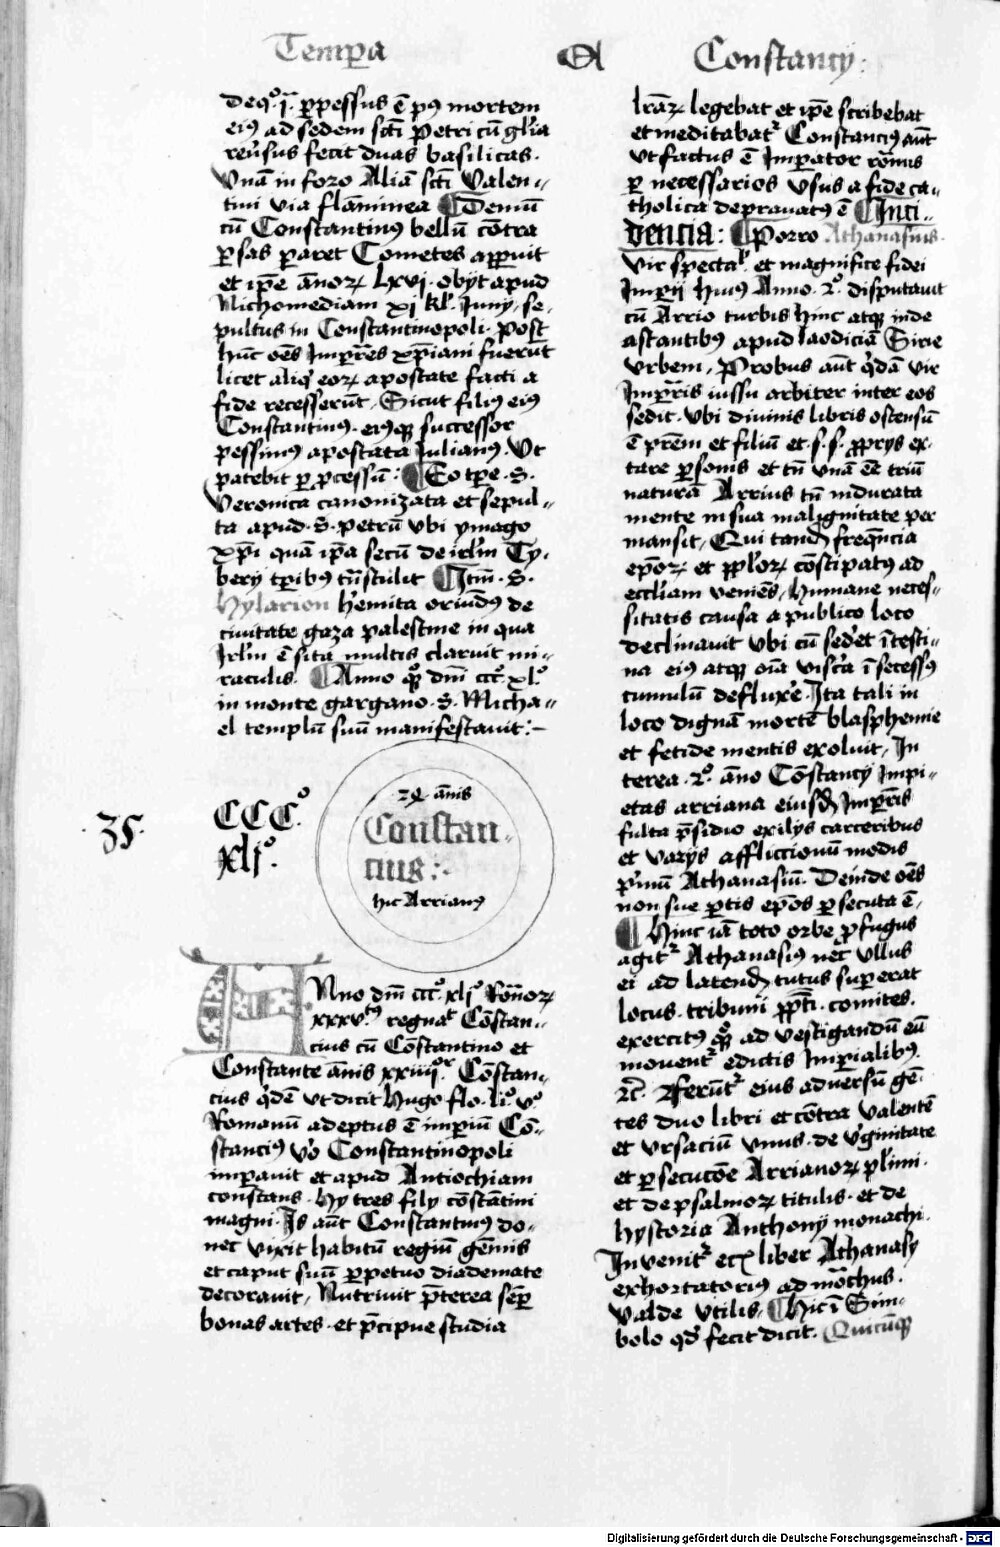 Tempa Constancij:
deqꝫ. ꝑpessus ē p9 mortem
ei9 ad sedem scti Petri cū gl̄ia
reu̓sus fecit duas basilicas.
Vnā in foro Aliā scti Valen-
tini via flāminea Demū
cū Constantin9 bellū cōtra
ꝑsas ꝑaret Cometes apꝑuit
et ip̄e ānoꝝ lxvi. obijt apud
Nichomediam xi kl̓. Iunij, se-
pultus in Constantinopoli. Post
hūc oēs Imꝑēs xp̄iani fuerūt
licet aliq̓ eoꝝ apostate facti a
fide recesserūt, Sicut fili9 ei9
Constantinus. ei9qꝫ successor
pessim9 apostata Iulian9. Vt
patebit ꝑ ꝓcessū: Eo tꝑe. S.
Veronica canonizata et sepul-
ta apud. S. Petrū vbi ymago
xp̄i quā ip̄a secū de irl̓m Ty-
berij tꝑibus tūstulit Itm̄. S.
Hylarion h̓emita oriūd9 de
ciuitate gaza palestine in qua
Irl̓m ē sita multis claruit mi-
raculis. Anno qꝫ dm̄ cccº xlº.
in monte gargano. S. Micha-
el templū suū manifestauit:-
35. CCCº xljº.
24 ānis
Constan-
cius:.
hic Arrian9
Anno dm̄ cccº xljº Romoꝝ
xxxv.t9 regnat Cōstan-
cius cū Cōstantino et
Constante ānis xxiiijor. Cōstan-
cius q̓dē vt dicit Hugo flo. liº vº
Romanū adeptus ē imꝑiū Cō-
stanci9 v̓o Constantinopoli
imꝑauit et apud Antiochiam
constans. Hij tres filij cōstātini
magni. Is aūt Constantin9 do-
nec vixit habitū regiū gēmis
et caput suū ꝑpetuo diademate
decorauit, Nutriuit p̄terea semꝑ
bonas artes. et p̄cipue studia
lr̄aꝝ legebat et ip̄e scribebat
et meditabat2 Constanci9 aūt
vt factus ē Imꝑator rōnus
ꝑ necessarios vsus a fide ca-
tholica deprauat9 ē Inci-
dencia: Porro Athanasius
vir spectal̓. et magnifice fidei
Imꝑij hui9 Anno. 2º. disputauit
cū Arrio turbis hinc atqꝫ inde
astantib9 apud laodiciā Sirie
vrbem, Probus aūt q̓dā vir
Imꝑris iussu arbiter inter eos
sedit. vbi diuinis libris ostensū
ē prēm et filiū et. s. s. ꝓprijs ex-
tare ꝑsonis et tn̄ vnā eē triū
naturā Arrius tn̄ indurata
mente in sua malignitate per
mansit, Qui tandē freqn̄cia
ep̄oꝝ et pplōꝝ cōstipat9 ad
eccl̓iam veniēs, humane neces-
sitatis causa a publico loco
declinauit vbi cū sed̓et ītesti-
na ei9 atqꝫ oīa visc̓a ī secess9
cumulū defluxe̓. Ita tali in
loco dignā mortē blasphemie
et fetide mentis exoluit, In
terea. 2º. āno Cōstancij Impi-
etas arriana eiusdē Imꝑris
fulta p̄sidio exilijs carceribus
et varijs affliccionū modis
p̓mū Athanasiū. Deinde oēs
non sue ꝑtis ep̄os ꝑsecuta ē.
Hinc iā toto orbe ꝓfugus
agit2 Athanasi9 nec vllus
ei ad latendū tutus suꝑerat
locus. tribuni p̄fti. comites.
exercit9 qꝫ ad vestigandū eū
mouent2 edictis Imꝑialib9.
⁊c̄. Aferūt2 eius aduersū gē-
tes duo libri et cōtra Valentē
et vrsaciū vnus. de v̓ginitate
et ꝑsecucōe Arrianoꝝ pl̓imi.
et de psalmoꝝ titulis. et de
hystoria Anthonij monachi.
Inuenit2 eciā liber Athanasij
exhortatori9 ad mōchus.
valde vtilis, Hic ī Sim-
bolo qd̓ fecit dicit. Quicūqꝫ
Digitalisierung gefördert durch die Deutsche Forschungsgemeinschaft - DFG